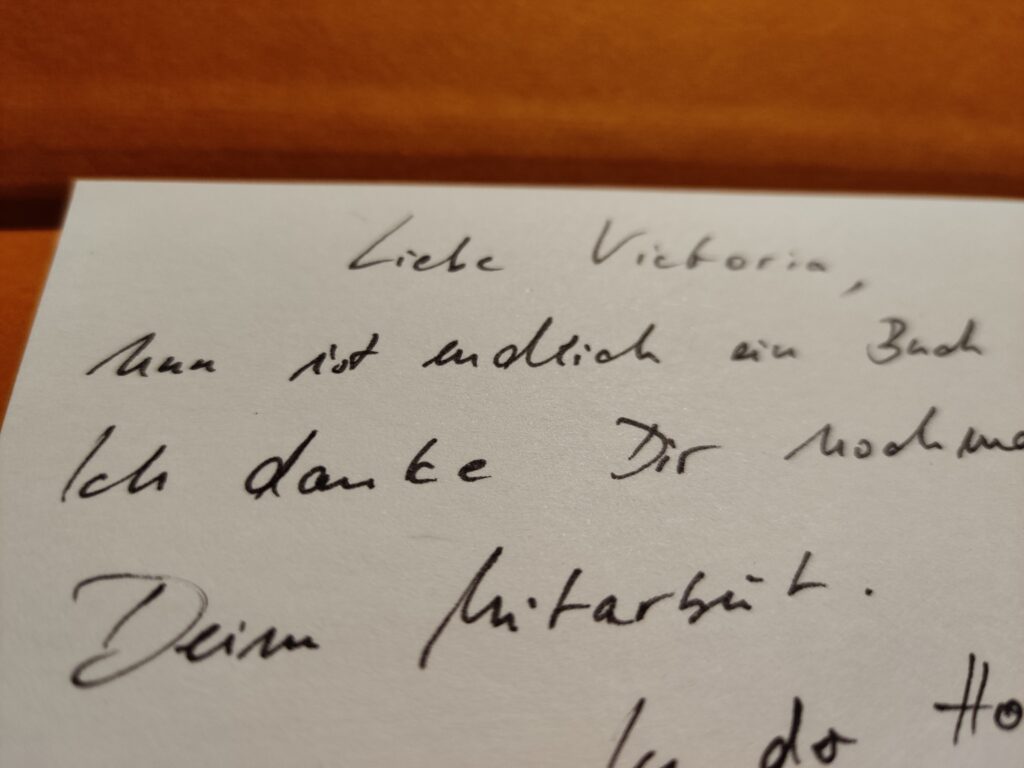 Liebe Victoria,
nun ist endlich ein Buch
Ich danke Dir nochma
Deine Mitarbeit.
In der Ho